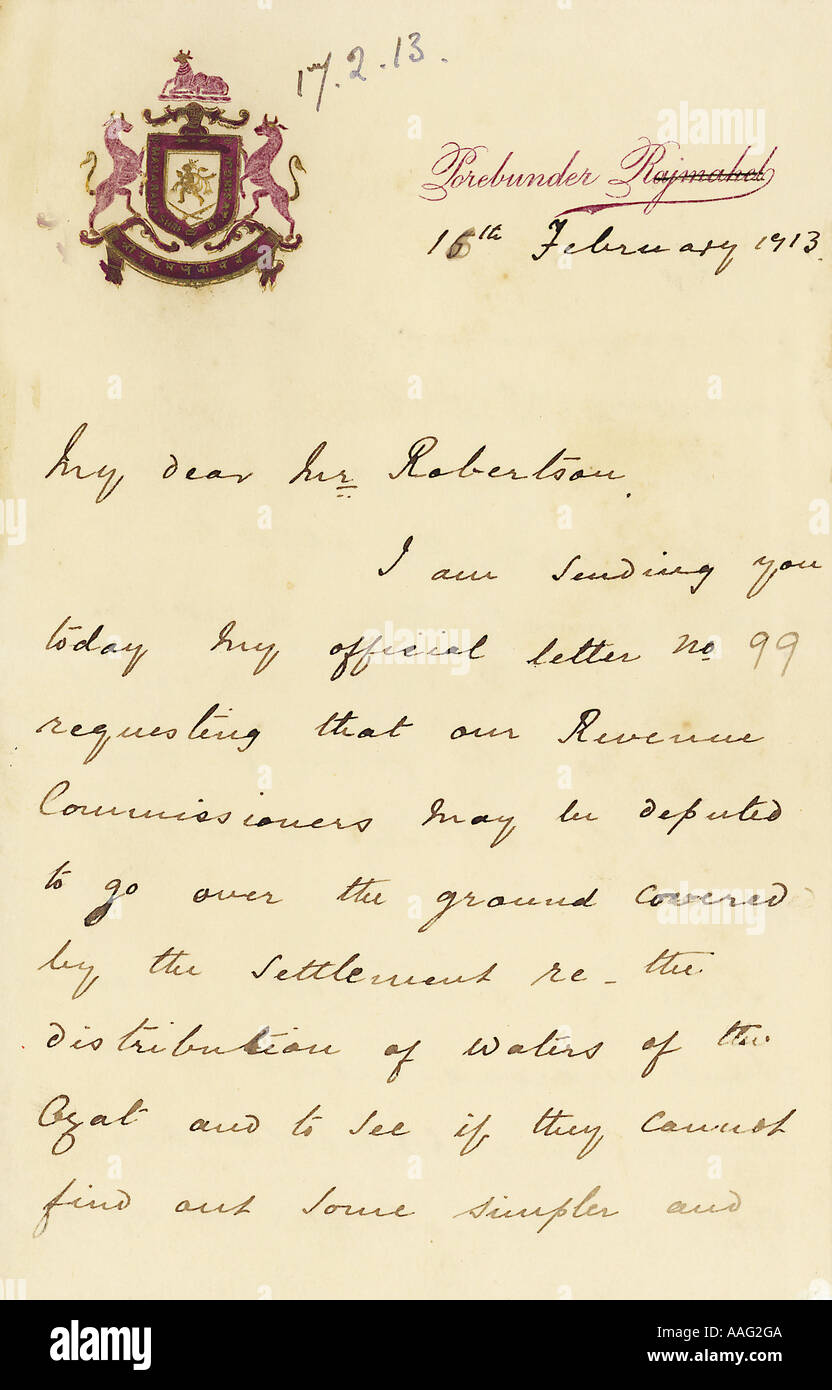 17.2.13.
Porebunder Rajmahal
16th February 1913.
My dear Mr Robertson.
I am sending you
today my official letter no 99
requesting that our Revenue
Commissioners may be deputed
to go over the ground covered
by the settlement re - the
distribution of waters of the
Ozat and to see if they cannot
find out some simpler and
alamy
Image ID: AAG2GA
www.alamy.com